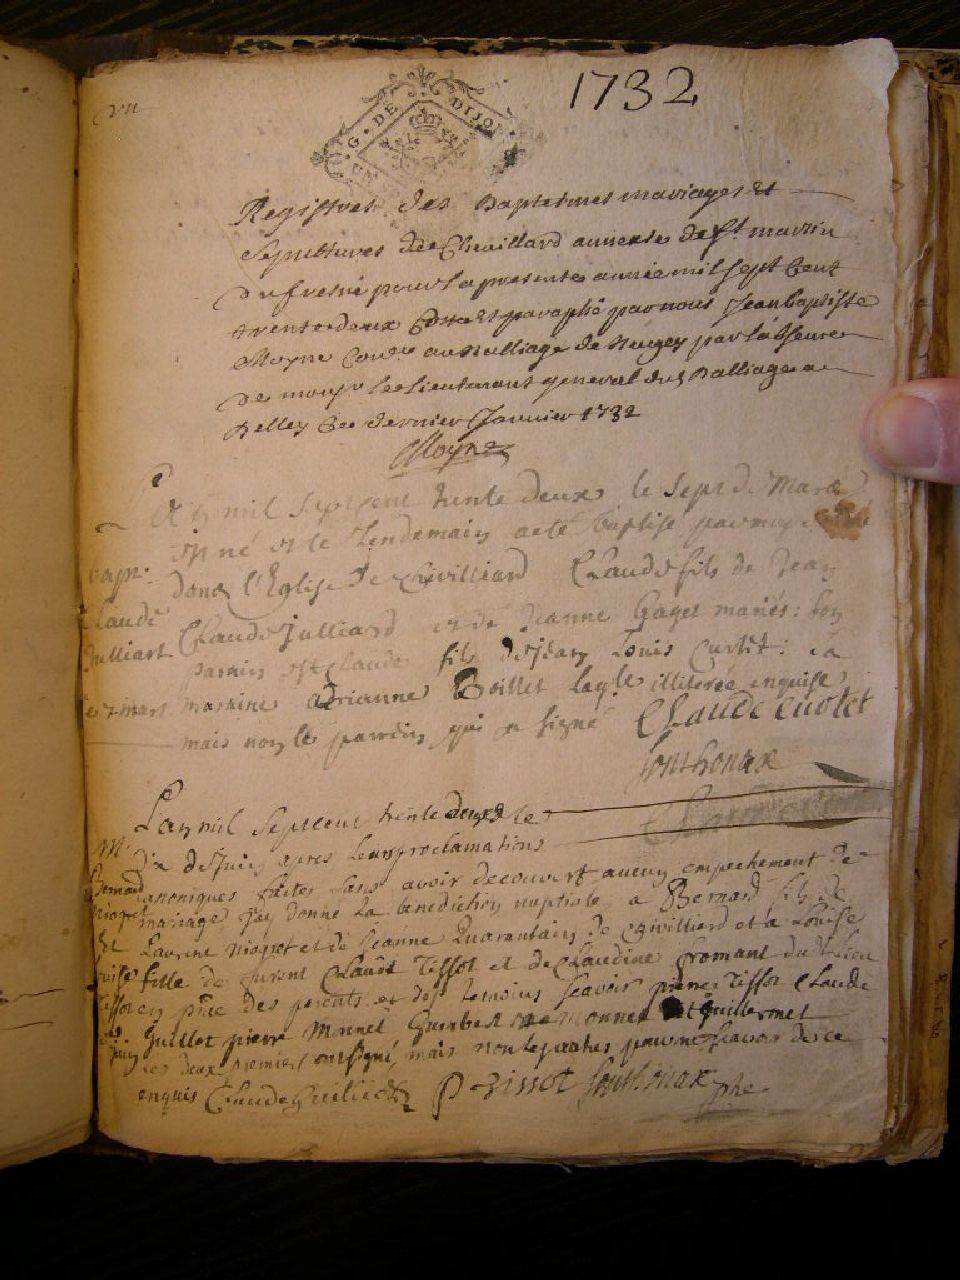 1732
G. DE DIJON
UN
Registres des Baptesmes mariages et
Sepultures de Chevillard annexe de St martin
du fresne pour la presente année mil sept Cent
trente deux Cotté et paraphé par nous Jean baptiste
Moyne Coner au Balliage de Beugey par l'absence
de monsr le lieutenant general dud Balliage a
Belley Ce dernier Janvier 1732
Moyne
mil sept cent trente deux le sept de Mars
est né et le lendemain a eté baptisé par moy
bapt. dans l'Eglise de Chivilliard Claude fils de Jean
Claude Claude Julliard et de Jeanne Gaget mariés: son
Julliart parrain est Claude fils de Jean Louis Curtet: la
7 mars marraine adrianne Boillet laqle illiterée enquise
mais non le parrain qui a signé Claude curtet
sonthonax
Lan mil sept cent trente deux le
M. dix de Juin apres leurs proclamations
Bernard canoniques faites sans avoir decouvert aucun empechement de
Niogret mariage j'ay donné la benediction nuptiale a Bernard fils de
Et Laurent Niogret et de Jeanne Quarantain de Chivilliard et a Louise
Louise fille de furent Claude Tissot et de Claudine Cromant du
Tissot en pnce des parents et des temoins scavoir pierre Tissot Claude
Guillet pierre Guillermet
Juin les deux premiers ont signé, mais non les autres pour ne scavoir de ce
enquis Claude P Tissot sonthonax pbre